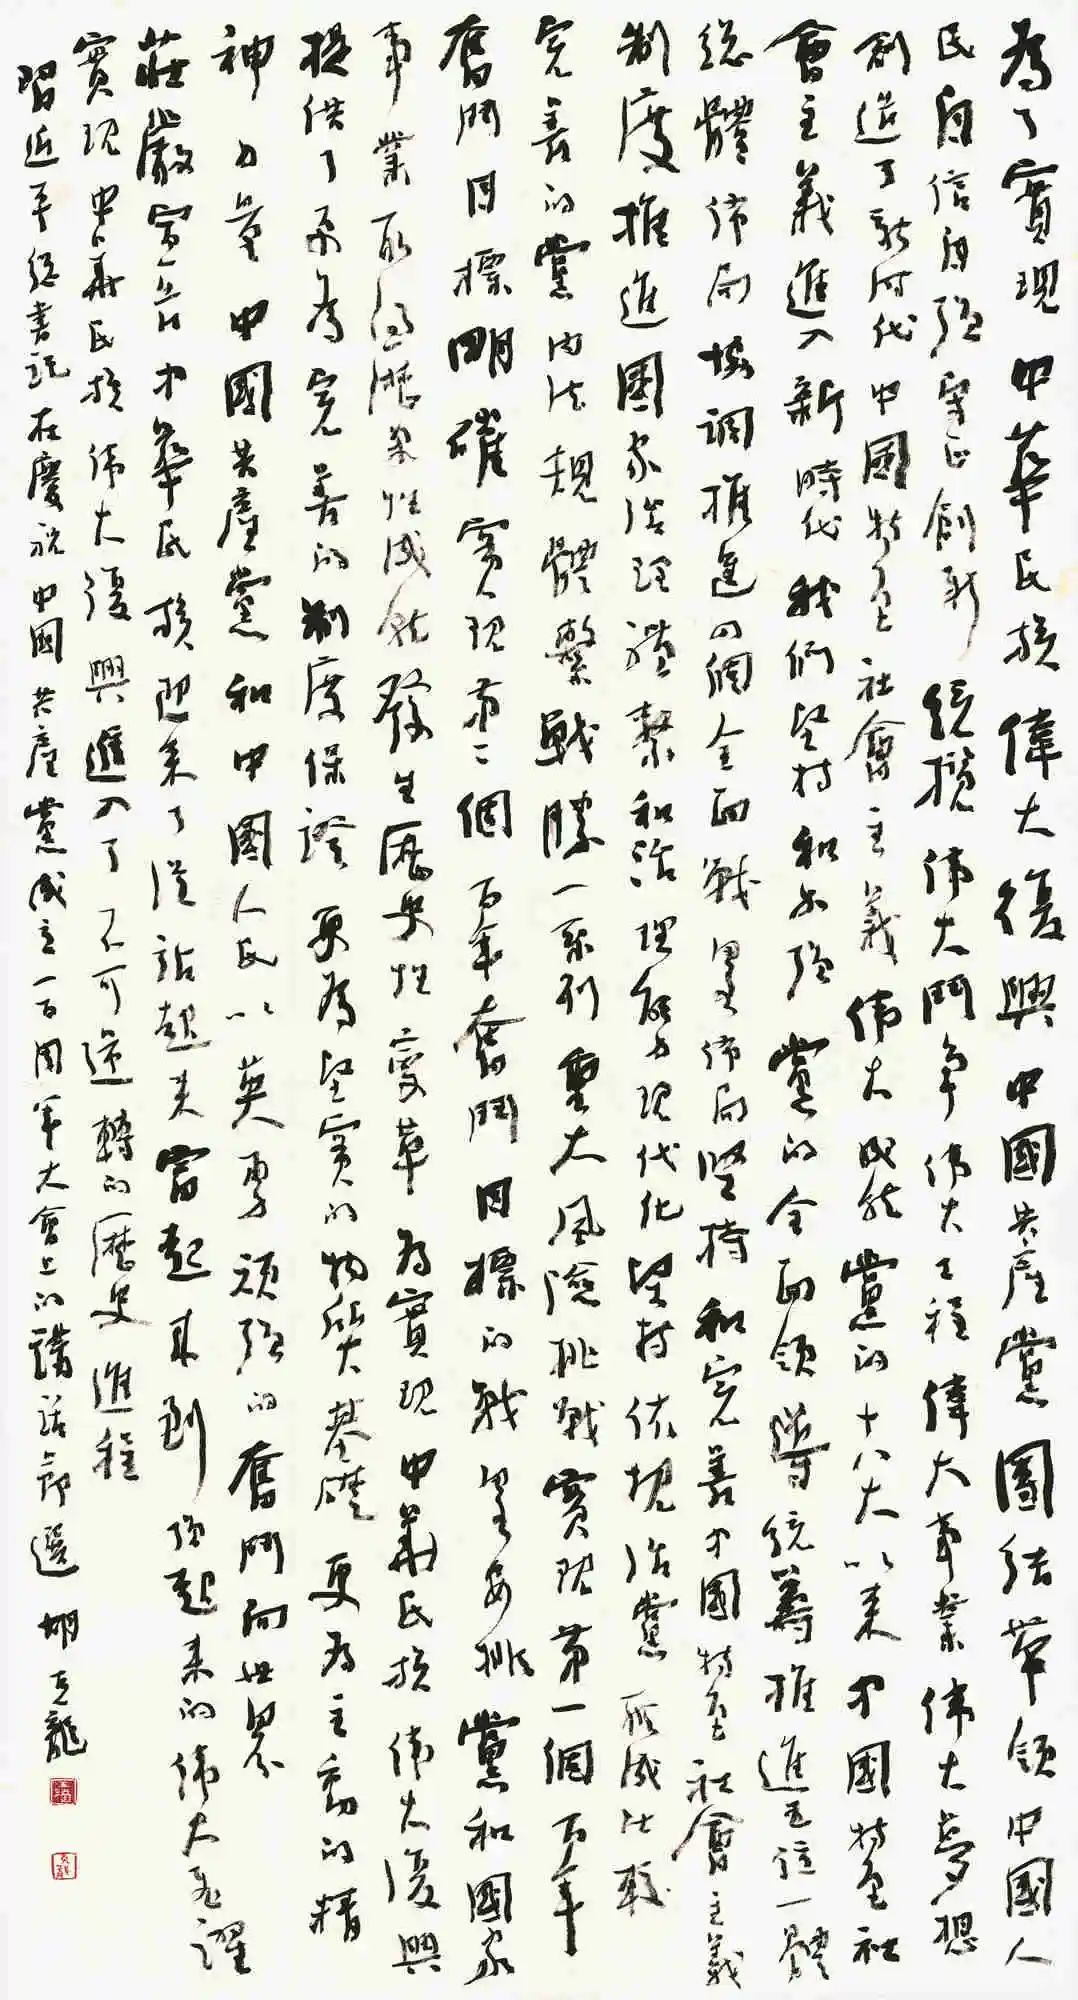 為了實現中華民族偉大復興中國共產黨團結帶領中國人
民自信自強守正創新統攬伟大鬥争伟大工程偉大事業伟大夢想
創造了新时代中國特色社會主義伟大成就黨的十八大以来中國特色社
會主義進入新時代我們坚持和加強黨的全面領導統籌推進五位一體
總體佈局協調推進四個全面戰略佈局堅持和完善中國特色社會主義
制度推進國家治理體繫和治理能力現代化堅持依規治黨形成比較
完善的黨内法規體繫戰勝一系列重大風險挑戰實現第一個百年
奮鬥目標明確實現第二個百年奮鬥目標的戰略安排黨和國家
事業取得歷史性成就發生歷史性變革為實現中華民族伟大復興
提供了更為完善的制度保證更為堅實的物質基礎更為主動的精
神力量中國共產黨和中國人民以英勇頑強的奮鬥向世界
莊嚴宣告中華民族迎来了從站起来富起來到強起来的伟大飛躍
實現中華民族伟大復興進入了不可逆轉的歷史進程
習近平總書記在慶祝中國共產黨成立一百周年大會上的講話節選 胡克龍